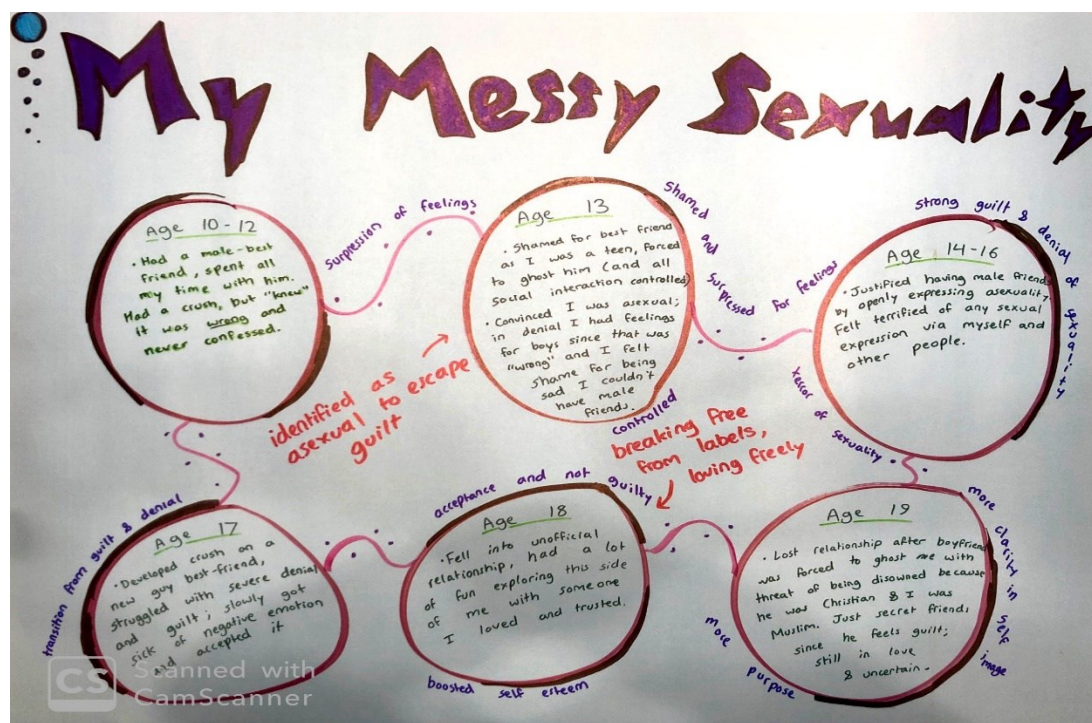 My Messy Sexuality
Age 10-12
• Had a male-best
friend, spent all
my time with him.
Had a crush, but "knew"
it was wrong and
never confessed.
surpression of feelings
Age 13
• Shamed for best friend
as I was a teen, forced
to ghost him (and all
social interaction controlled)
• Convinced I was asexual;
in denial I had feelings
for boys since that was
"wrong" and I felt
shame for being
sad I couldn't
have male
friends.
controlled
identified as
asexual to escape
guilt
Shamed and surpressed for feelings
strong guilt & denial of sexuality
Age 14-16
• Justified having male friends
by openly expressing asexuality.
Felt terrified of any sexual
expression via myself and
other people.
of sexuality
breaking free
from labels,
loving freely
transition from guilt & denial
Age 17
• Developed crush on a
new guy best-friend,
struggled with severe denial
and guilt; slowly got
sick of negative emotion
and accepted it
acceptance and not guilty
Age 18
• Fell into unofficial
relationship, had a lot
of fun exploring this side
of me with someone
I loved and trusted.
boosted self esteem
Age 19
• Lost relationship after boyfriend
was forced to ghost me with
threat of being disowned because
he was Christian & I was
Muslim. Just secret friends
since he feels guilt;
still in love
& uncertain.
more clarity in self image
more purpose
CS Scanned with
CamScanner